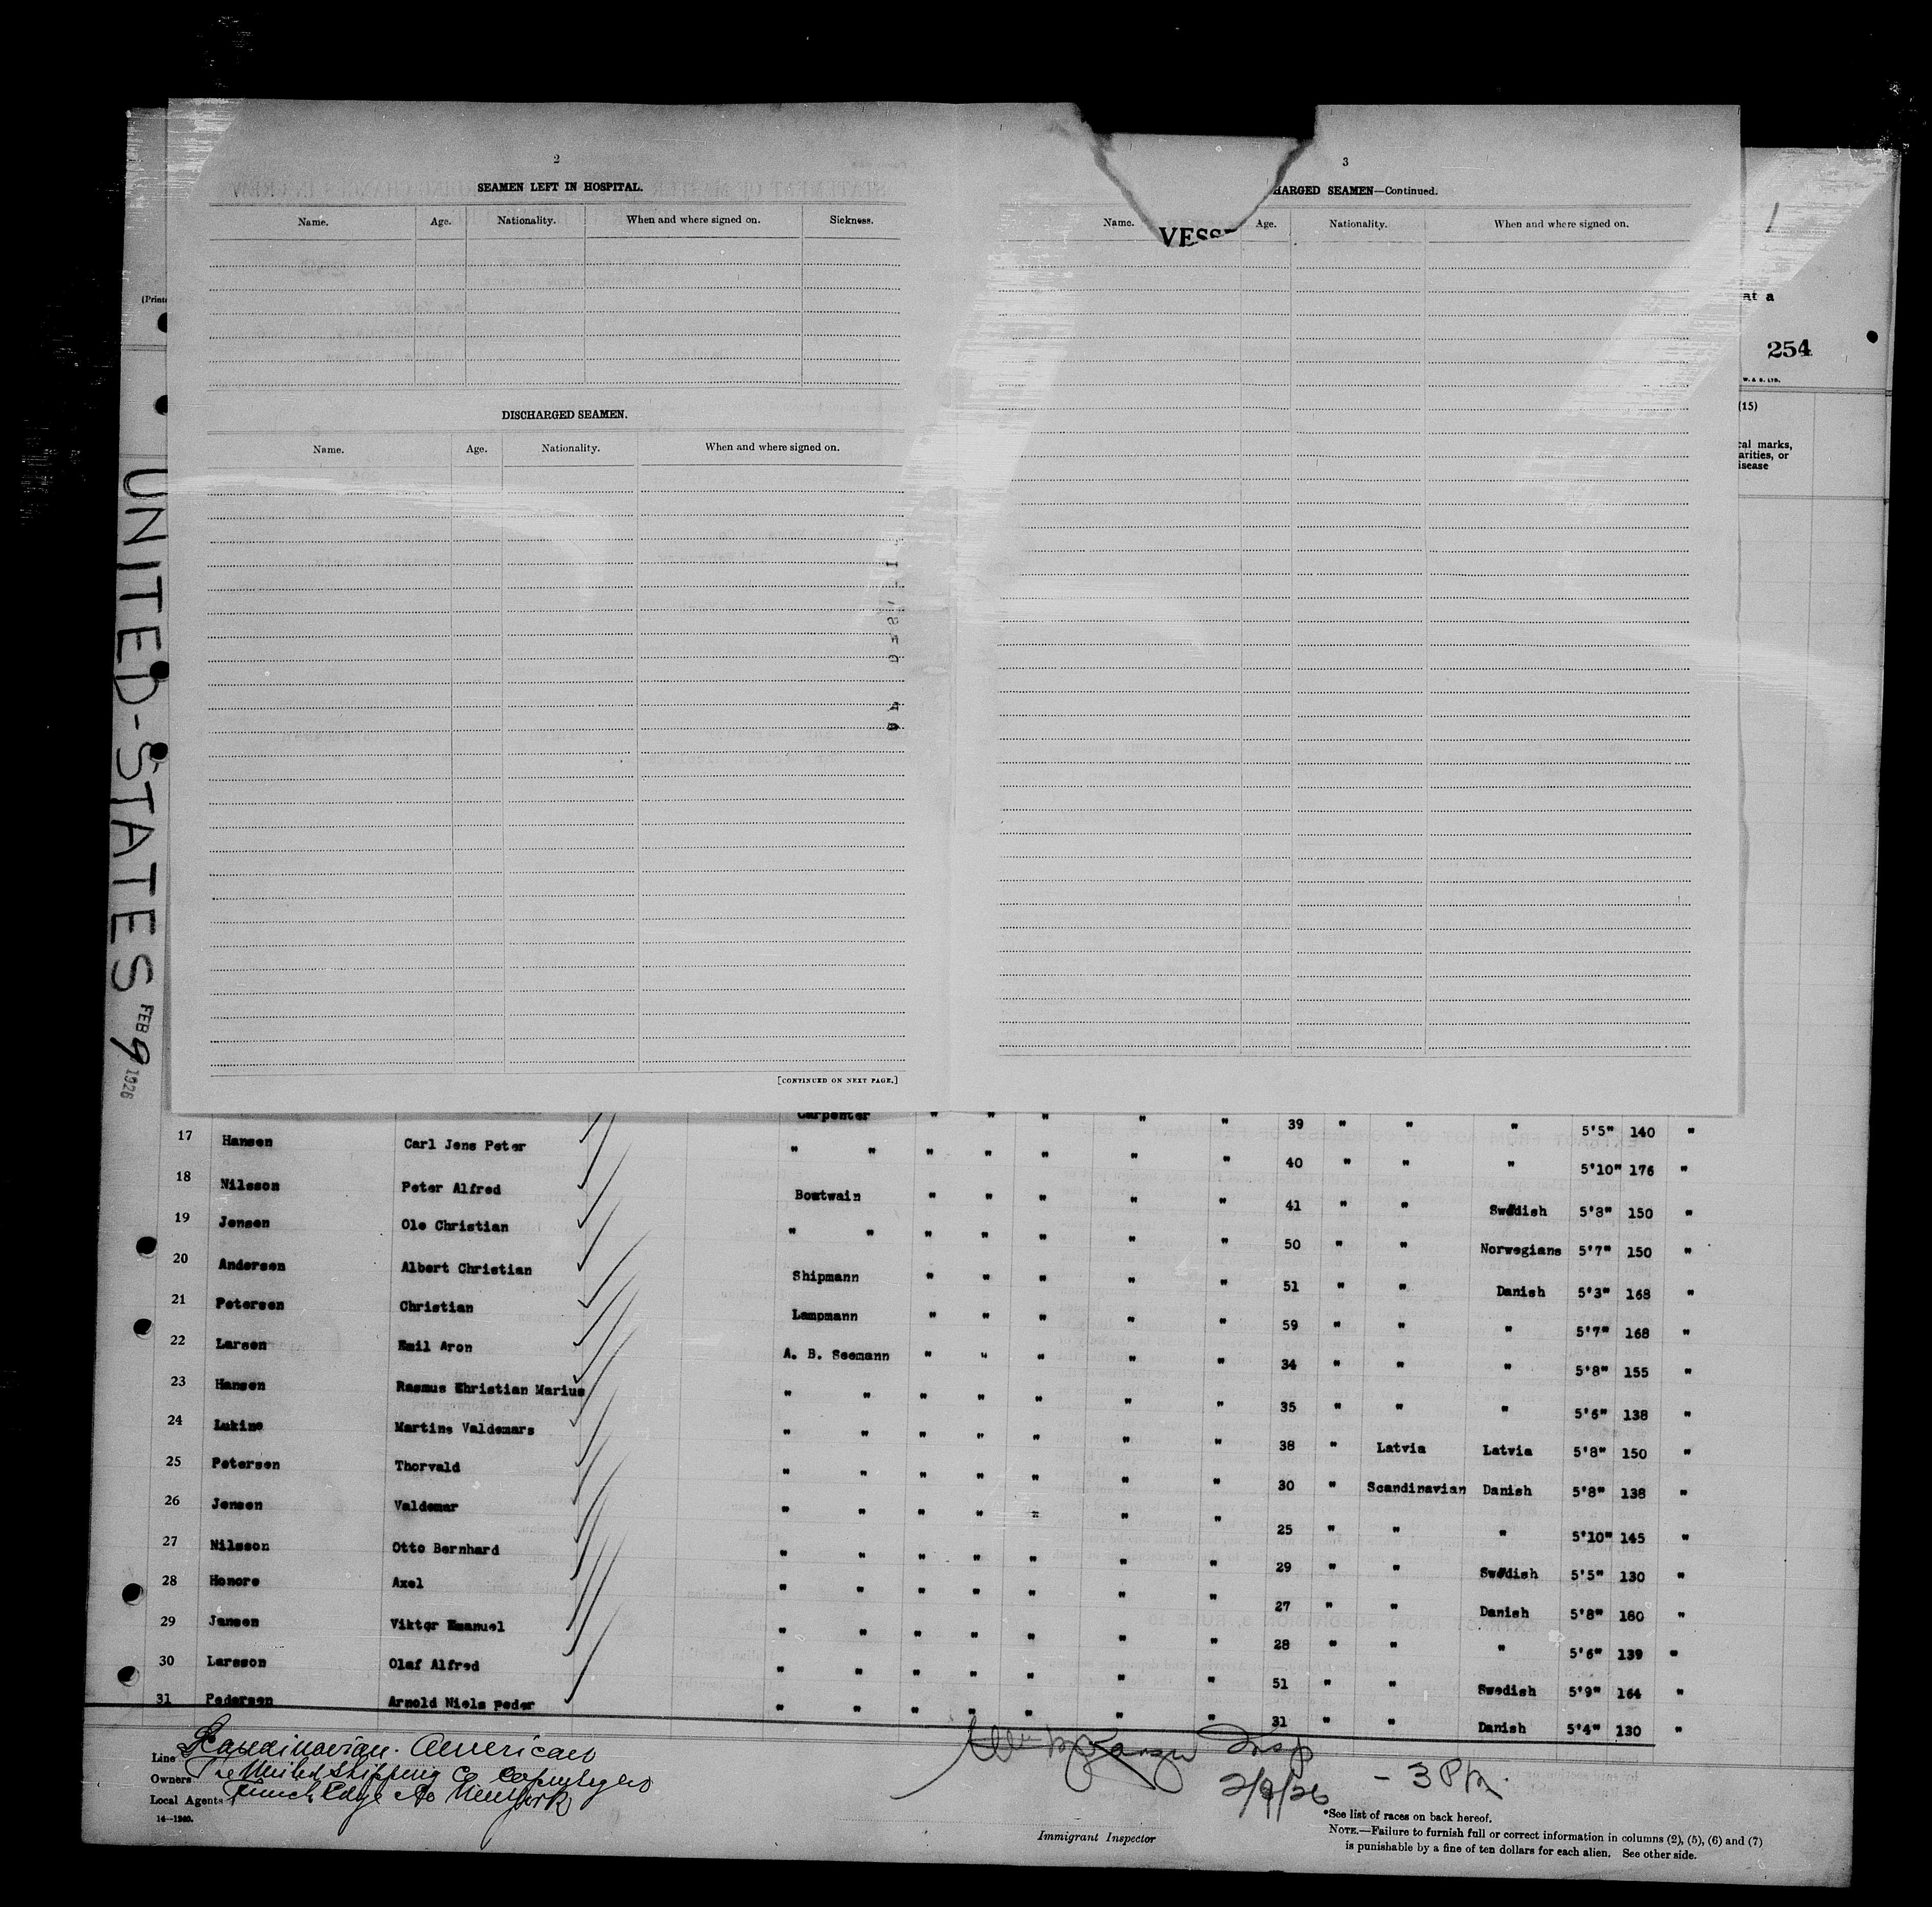 2
SEAMEN LEFT IN HOSPITAL.
Name. Age. Nationality. When and where signed on. Sickness.
DISCHARGED SEAMEN.
Name. Age. Nationality. When and where signed on.
[CONTINUED ON NEXT PAGE.]
3
HARGED SEAMEN—Continued.
Name. Age. Nationality. When and where signed on.
VESS
at a
254
W. & S. LTD.
(15)
cal marks,
arities, or
isease
(Print
UNITED-STATES
FEB 9 1926
Carpenter " " " " " 39 " " " 5'5" 140 "
17 Hansen Carl Jens Peter " " " " " " " 40 " " " 5'10" 176 "
18 Nilsson Peter Alfred Boatwain " " " " " 41 " " Swedish 5'8" 150 "
19 Jensen Ole Christian " " " " " " " 50 " " Norwegians 5'7" 150 "
20 Andersen Albert Christian Shipmann " " " " " 51 " " Danish 5'3" 168 "
21 Petersen Christian Lampmann " " " " " 59 " " " 5'7" 168 "
22 Larsen Emil Aron A. B. Seemann " " " " " 34 " " " 5'8" 155 "
23 Hansen Rasmus Christian Marius " " " " " " " 35 " " " 5'6" 138 "
24 Lukins Martins Valdemars " " " " " " " 38 " Latvia Latvia 5'8" 150 "
25 Petersen Thorvald " " " " " " " 30 " Scandinavian Danish 5'8" 138 "
26 Jensen Valdemar " " " " " " " 25 " " " 5'10" 145 "
27 Nilsson Otto Bernhard " " " " " " " 29 " " Swedish 5'5" 130 "
28 Honore Axel " " " " " " " 27 " " Danish 5'8" 160 "
29 Jansen Viktor Emanuel " " " " " " " 28 " " " 5'6" 139 "
30 Larsson Olaf Alfred " " " " " " " 51 " " Swedish 5'9" 164 "
31 Pedersen Arnold Niels peder " " " " " " " 31 " " Danish 5'4" 130 "
Line Scandinavian-American
Owners The United Shipping Co Copenhagen
Local Agents Funch Edye Co New York
14—1240.
Insp
2/9/26 - 3 PM.
Immigrant Inspector
*See list of races on back hereof.
NOTE.—Failure to furnish full or correct information in columns (2), (5), (6) and (7)
is punishable by a fine of ten dollars for each alien. See other side.